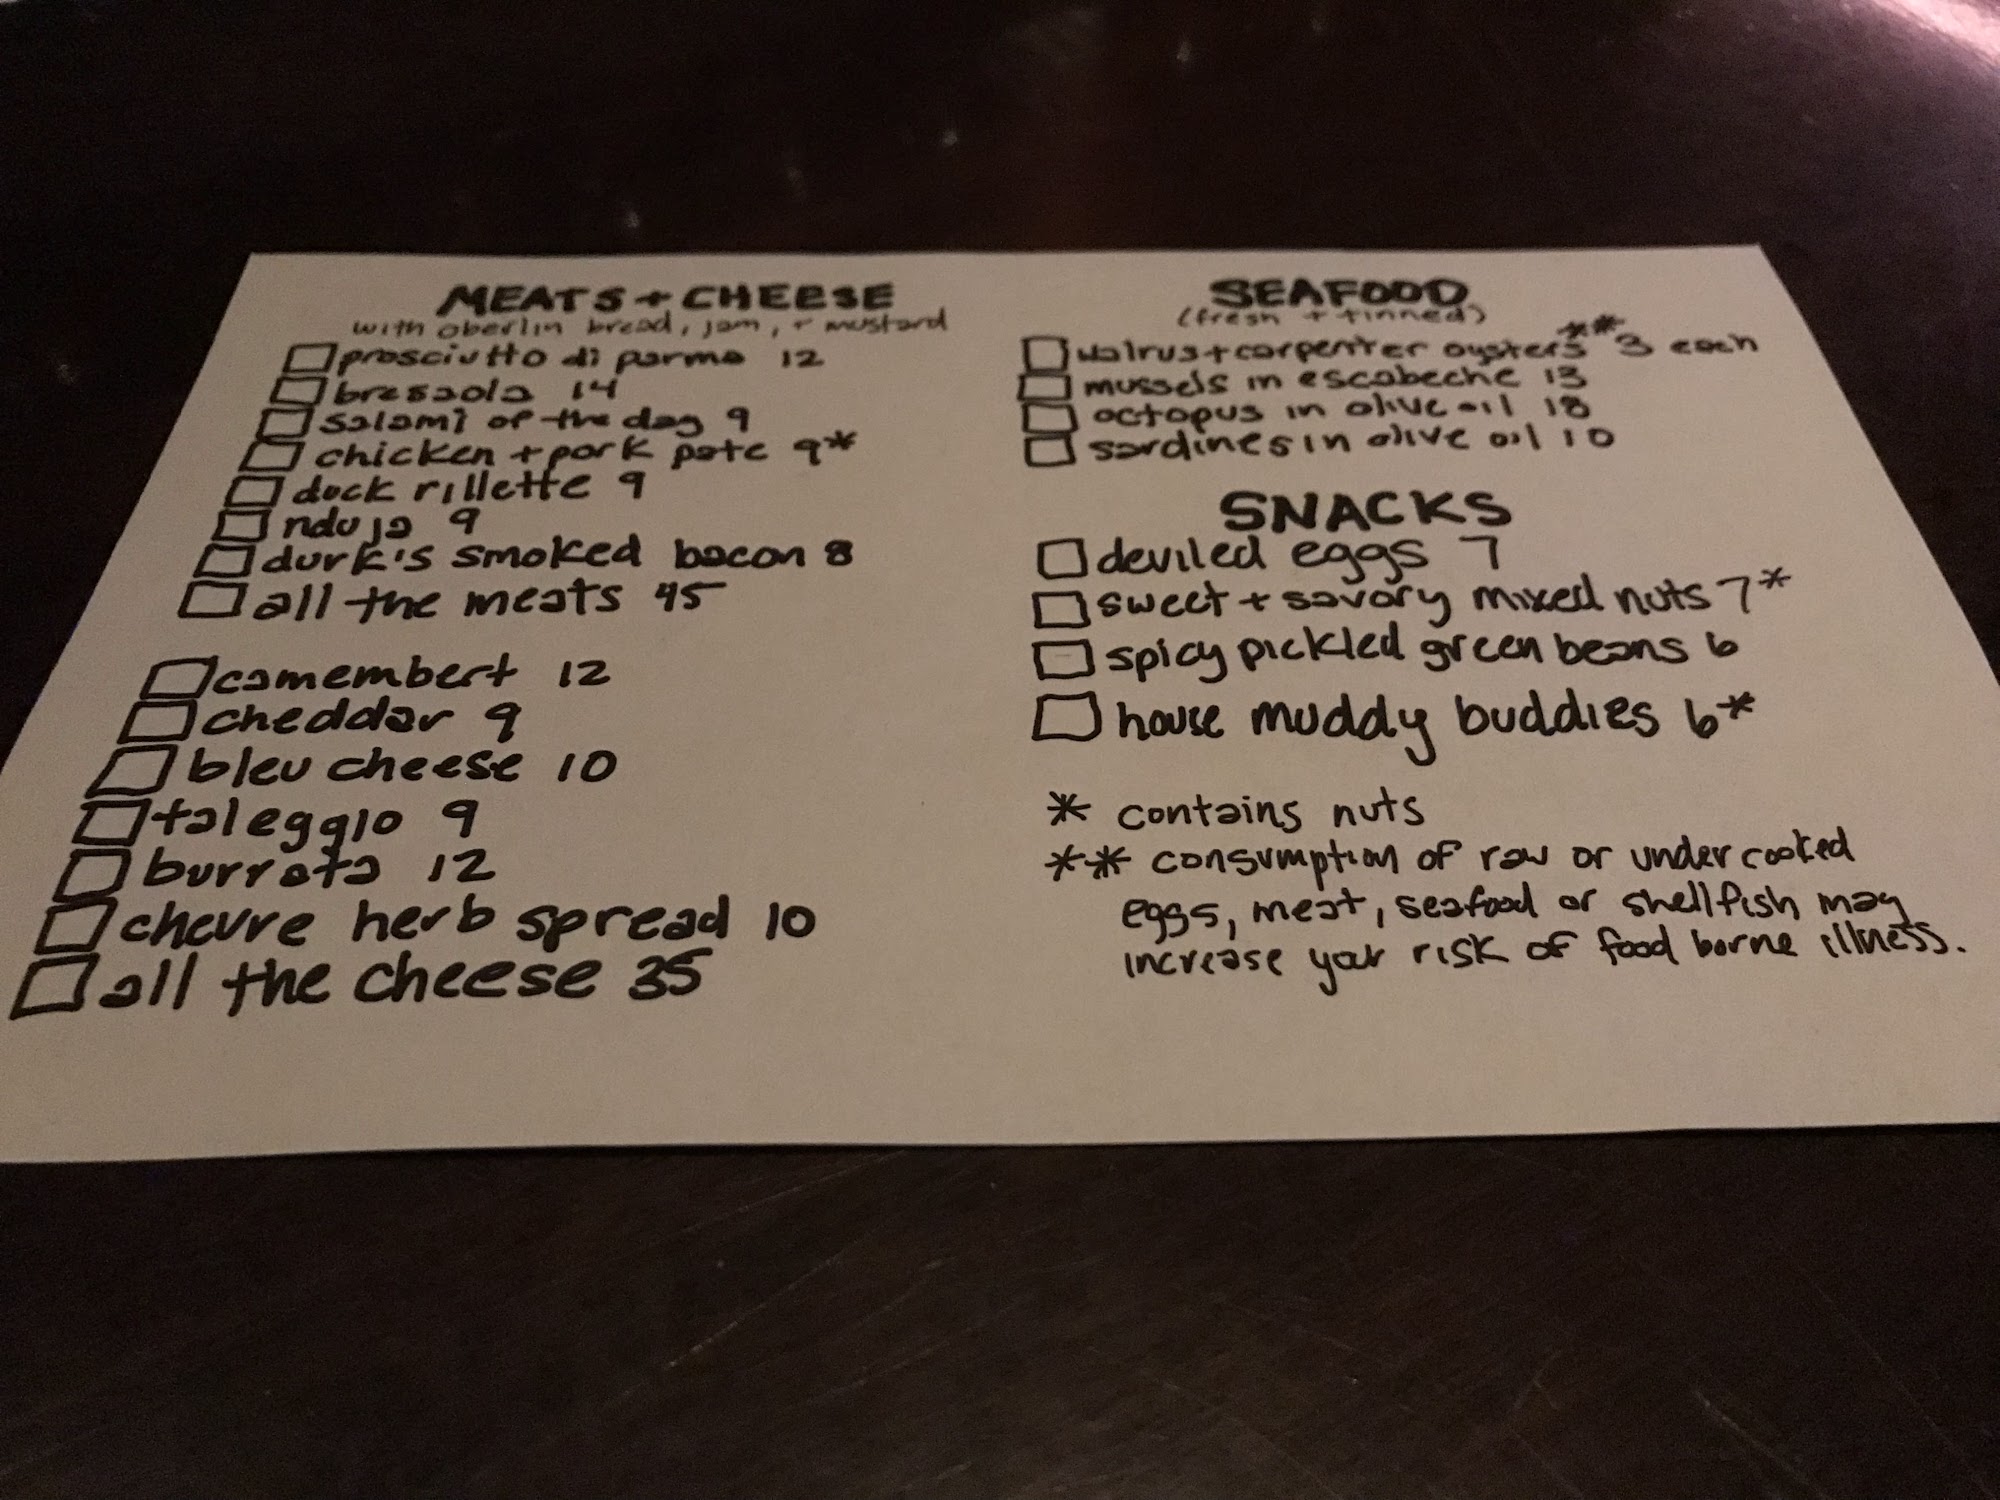 MEATS + CHEESE
with oberlin bread, jam, + mustard
prosciutto di parma 12
bresaola 14
salami of the day 9
chicken + pork pate 9*
duck rillette 9
nduja 9
durk's smoked bacon 8
all the meats 45
camembert 12
cheddar 9
bleu cheese 10
taleggio 9
burrata 12
chevre herb spread 10
all the cheese 35
SEAFOOD
(fresh + tinned)
walrus + carpenter oysters** 3 each
mussels in escabeche 13
octopus in olive oil 18
sardines in olive oil 10
SNACKS
deviled eggs 7
sweet + savory mixed nuts 7*
spicy pickled green beans 6
house muddy buddies 6*
* contains nuts
** consumption of raw or undercooked
eggs, meat, seafood or shellfish may
increase your risk of food borne illness.